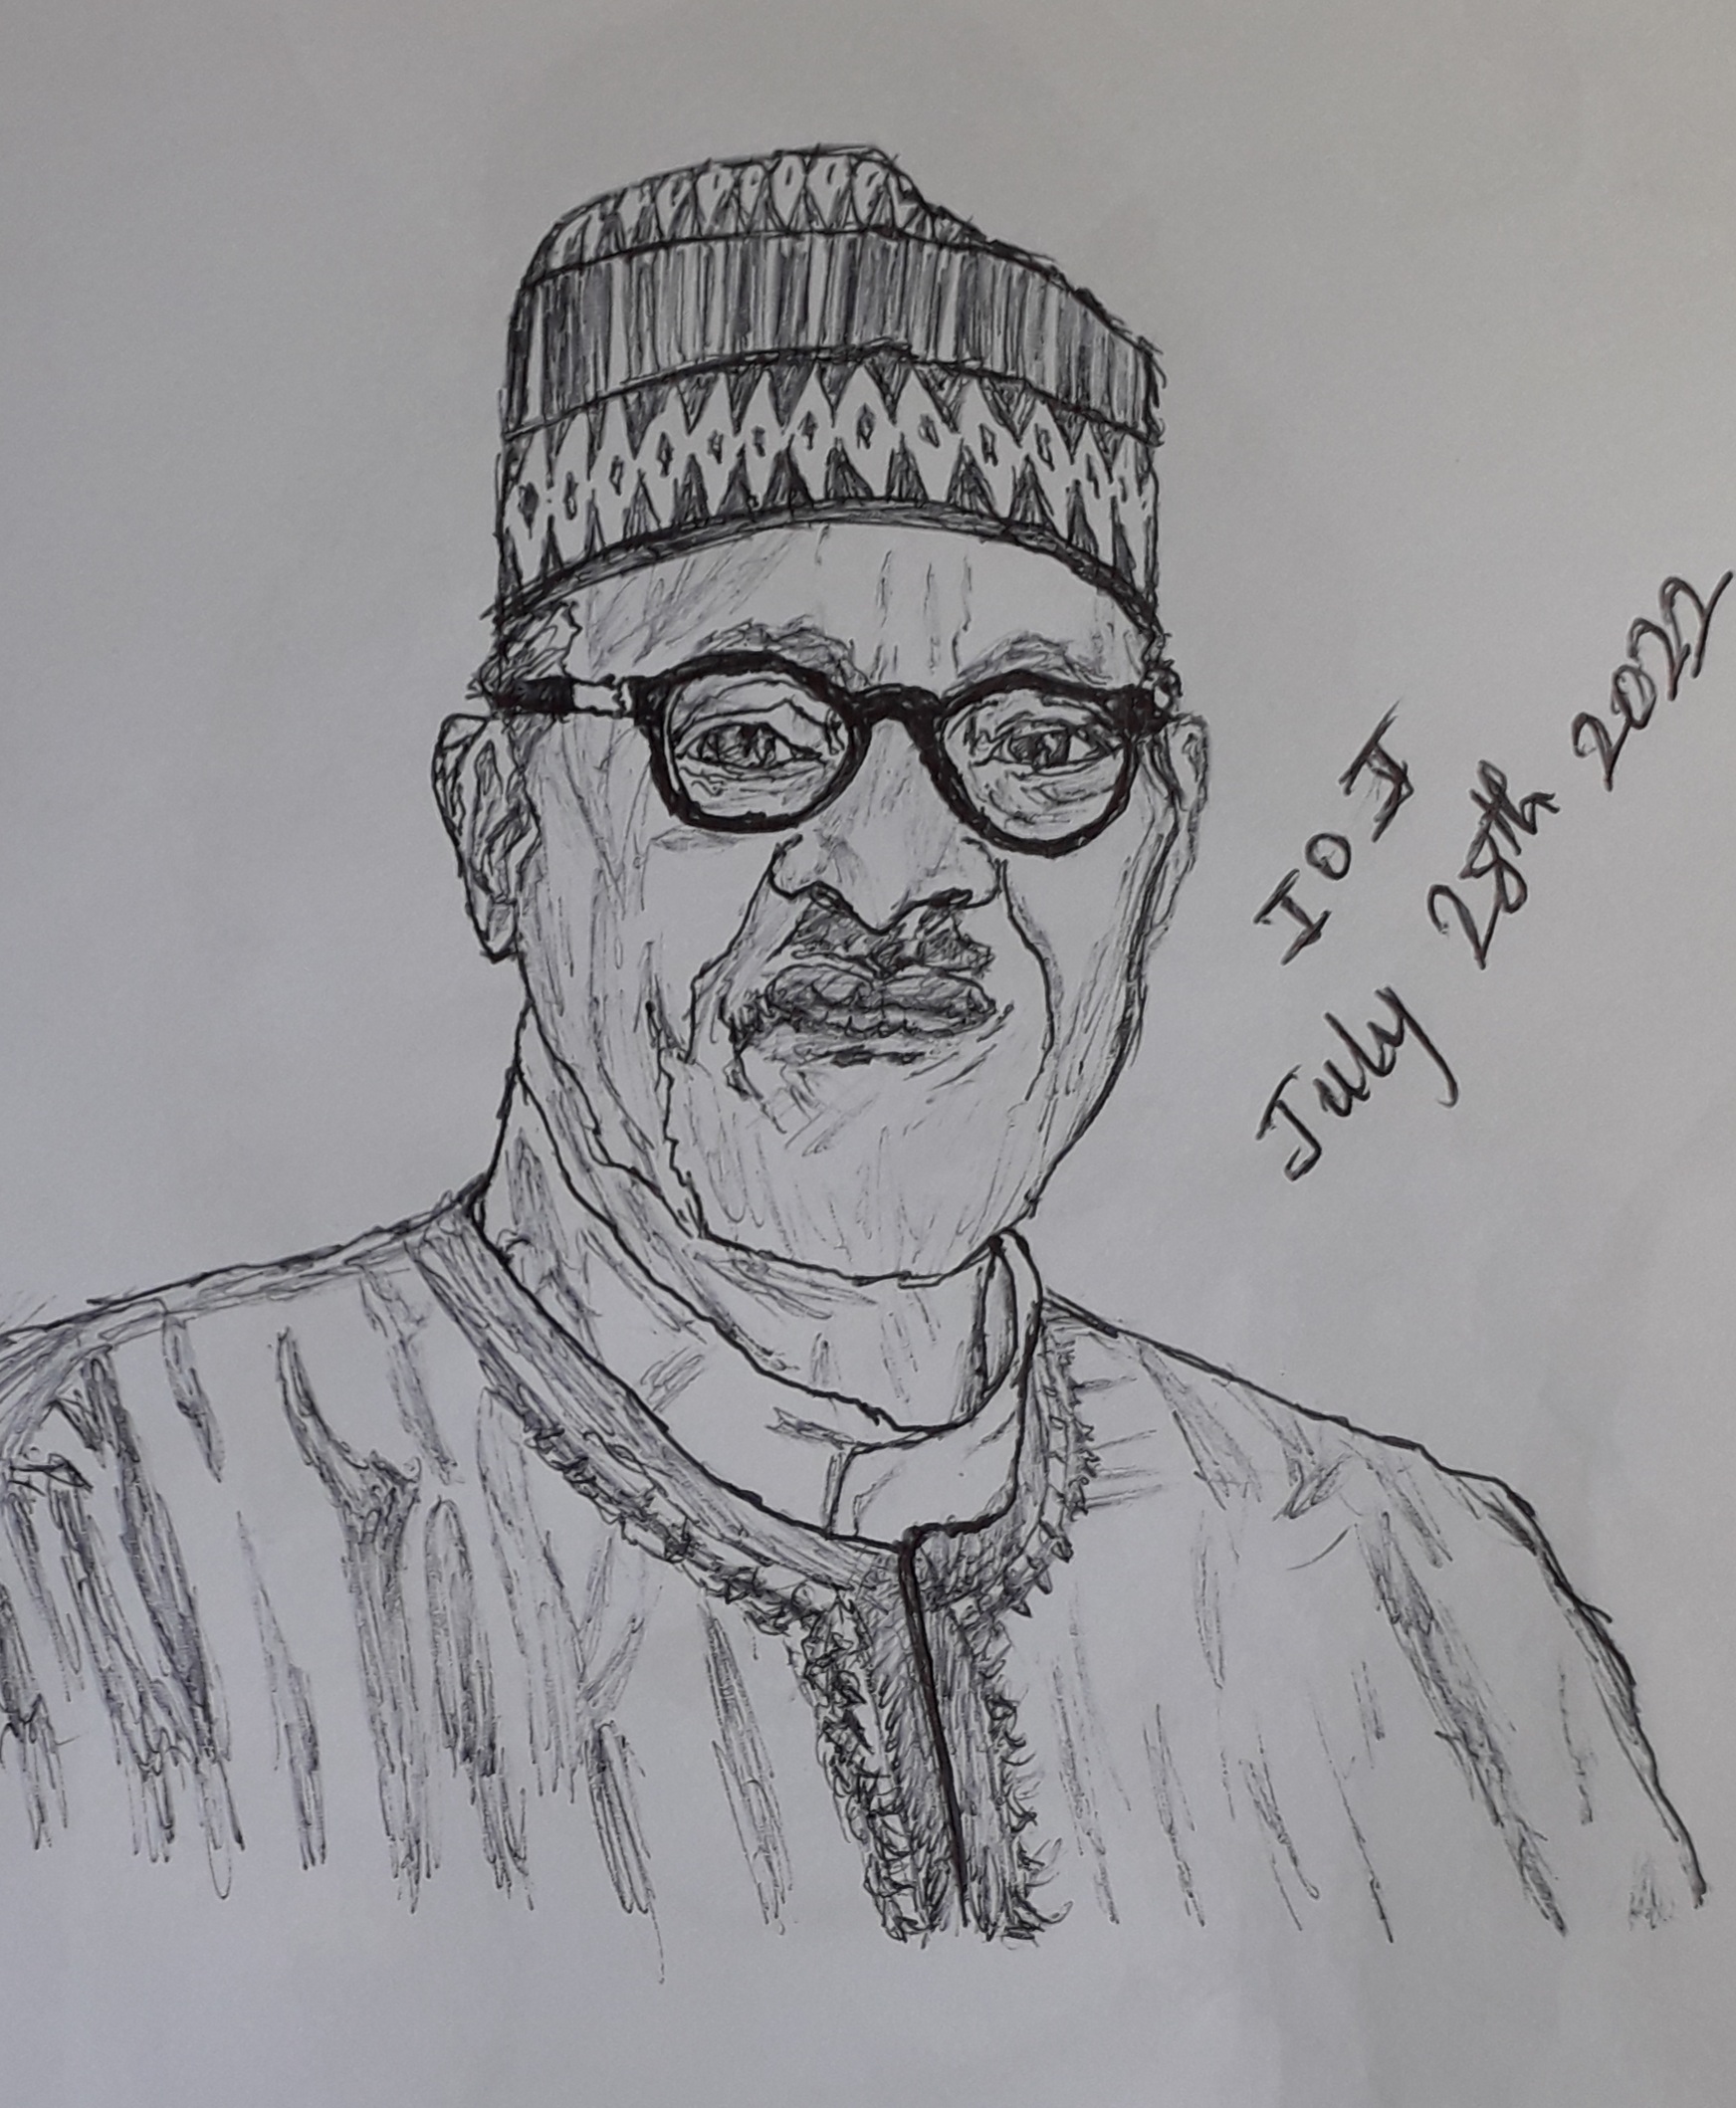 IOJ
July 28th 2022